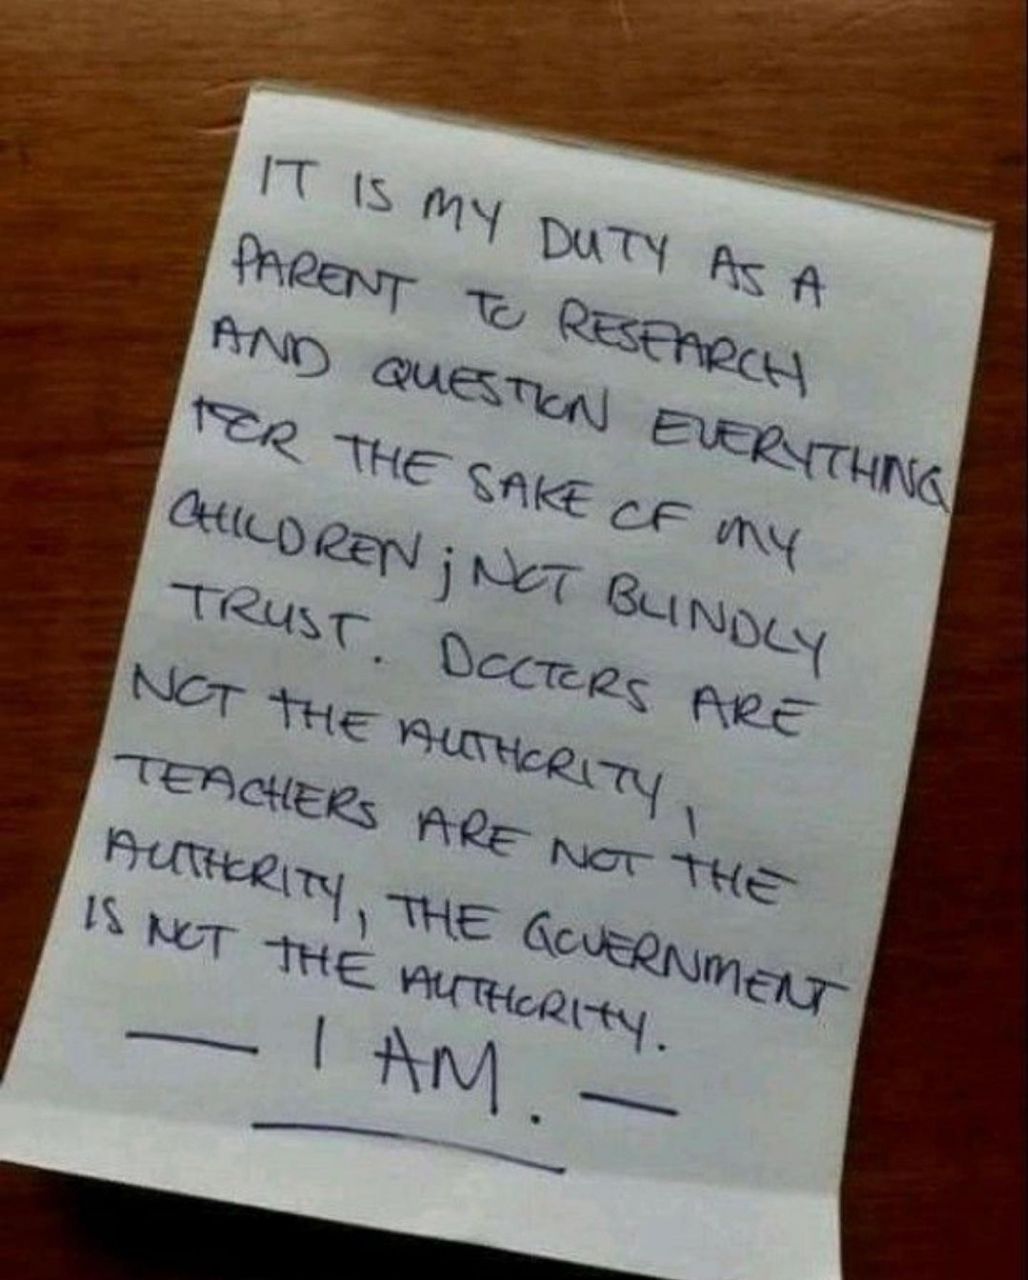 IT IS MY DUTY AS A
PARENT TO RESEARCH
AND QUESTION EVERYTHING
FOR THE SAKE OF MY
CHILDREN; NOT BLINDLY
TRUST. DOCTORS ARE
NOT THE AUTHORITY,
TEACHERS ARE NOT THE
AUTHORITY, THE GOVERNMENT
IS NOT THE AUTHORITY.
— I AM. —